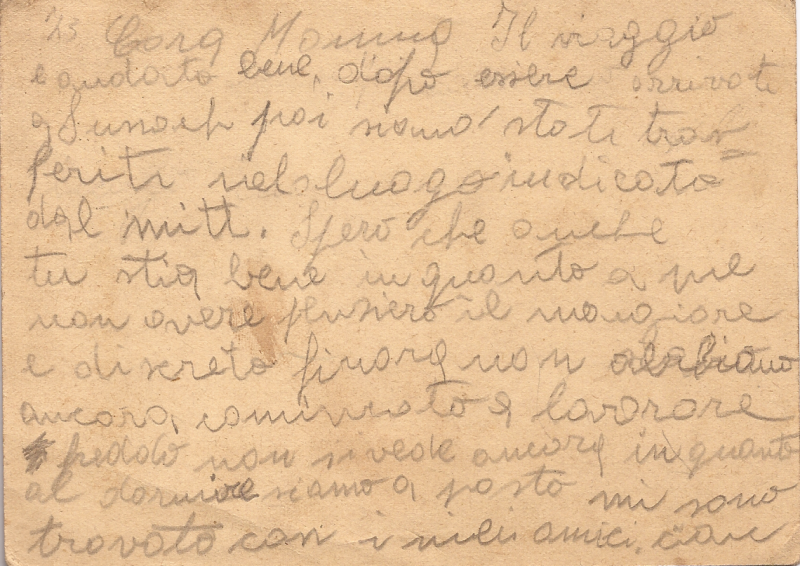 1/3 Cara Mamma Il viaggio
e andato bene, dopo essere arrivati
a poi siamo stati tras=
feriti nel luogo indicato
dal mitt. Spero che anche
tu stia bene in quanto a me
non avere pensiero il mangiare
e discreto finora non abbiamo
ancora cominciato a lavorare
Pedalo non si vede ancora in quanto
al dormire siamo a posto mi sono
trovato con i miei amici. can